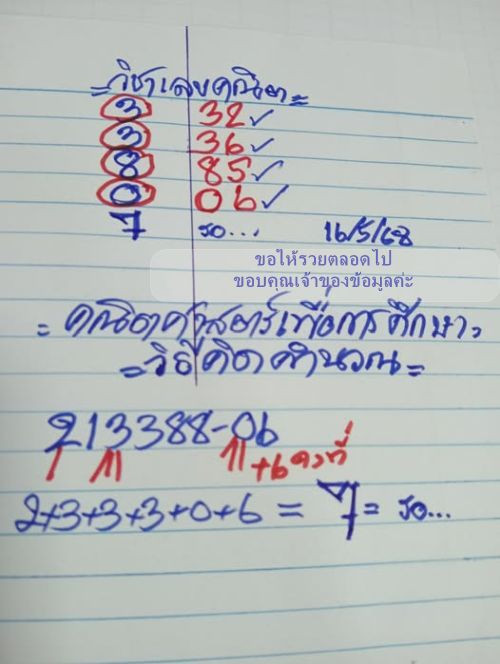 =วิชาเลขคณิต=
3 32✓
3 36✓
8 85✓
0 06✓
7 รอ... 16/5/68
ขอให้รวยตลอดไป
ขอบคุณเจ้าของข้อมูลค่ะ
=คณิตศาสตร์เพื่อการศึกษา=
=วิธีคิดคำนวณ=
213388-06
+6คงที่
2+3+3+3+0+6 = 7 = รอ...